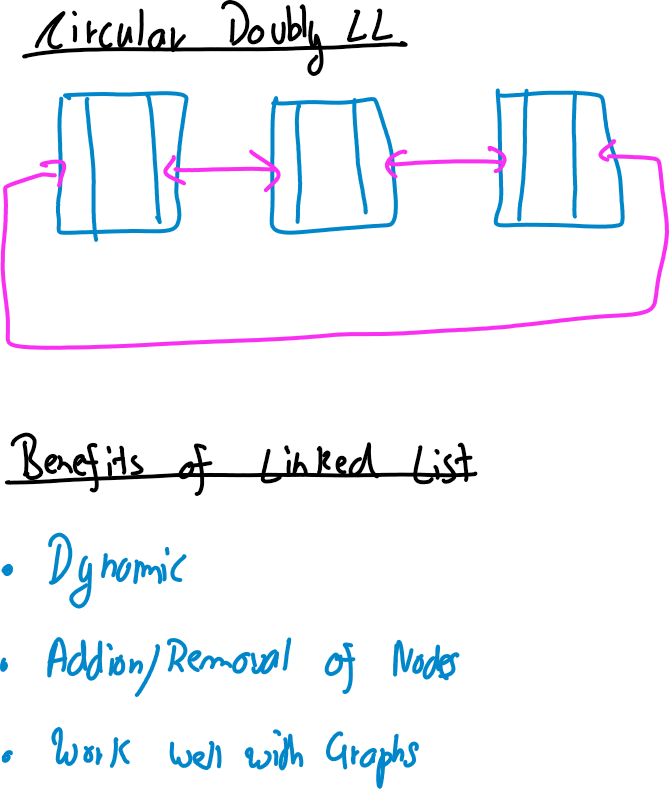 Circular Doubly LL
Benefits of Linked List
• Dynamic
• Addion/Removal of Nodes
• Work well with Graphs